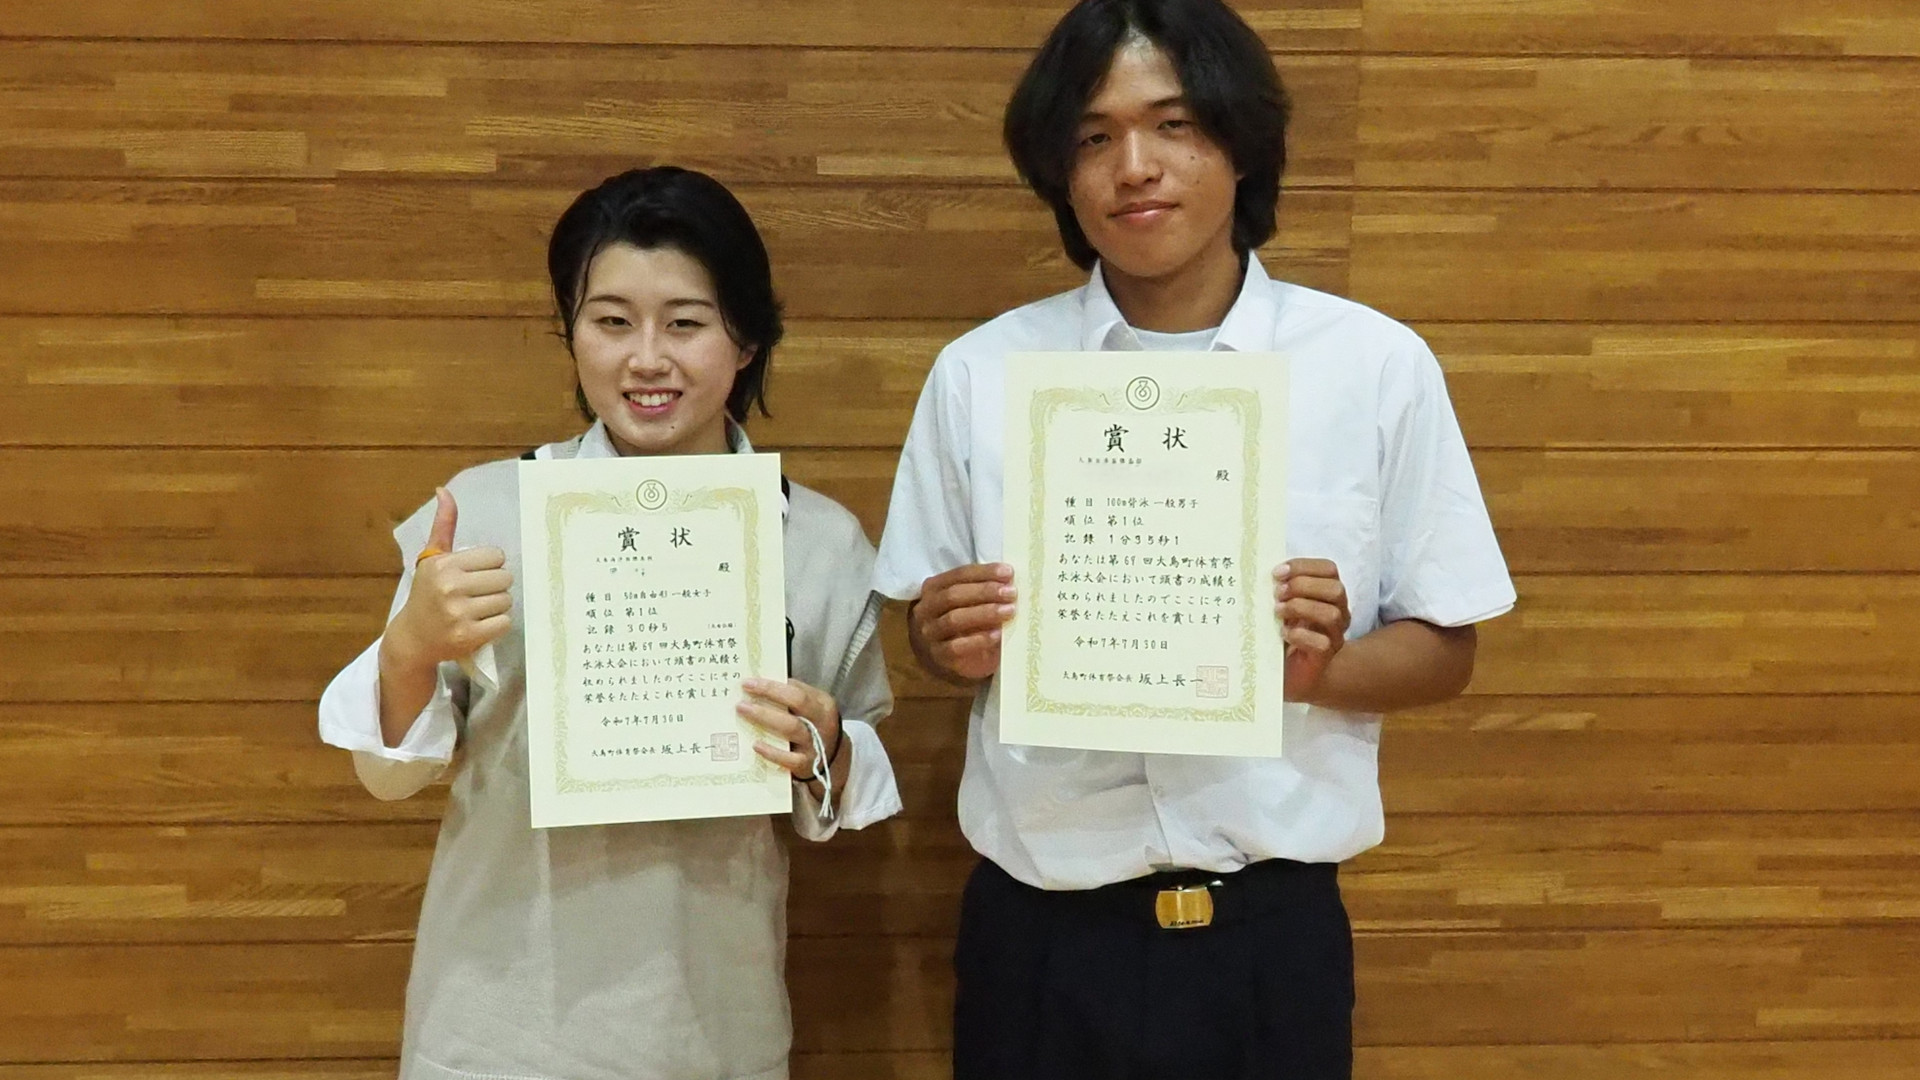 賞 状
殿
種 目 50m自由形 一般女子
順 位 第1位
記 録 30秒5
あなたは第69回大島町体育祭
水泳大会において頭書の成績を
収められましたのでここにその
栄誉をたたえこれを賞します
令和7年7月30日
大島町体育祭会長 坂上長一
賞 状
殿
種 目 100m背泳 一般男子
順 位 第1位
記 録 1分35秒1
あなたは第69回大島町体育祭
水泳大会において頭書の成績を
収められましたのでここにその
栄誉をたたえこれを賞します
令和7年7月30日
大島町体育祭会長 坂上長一